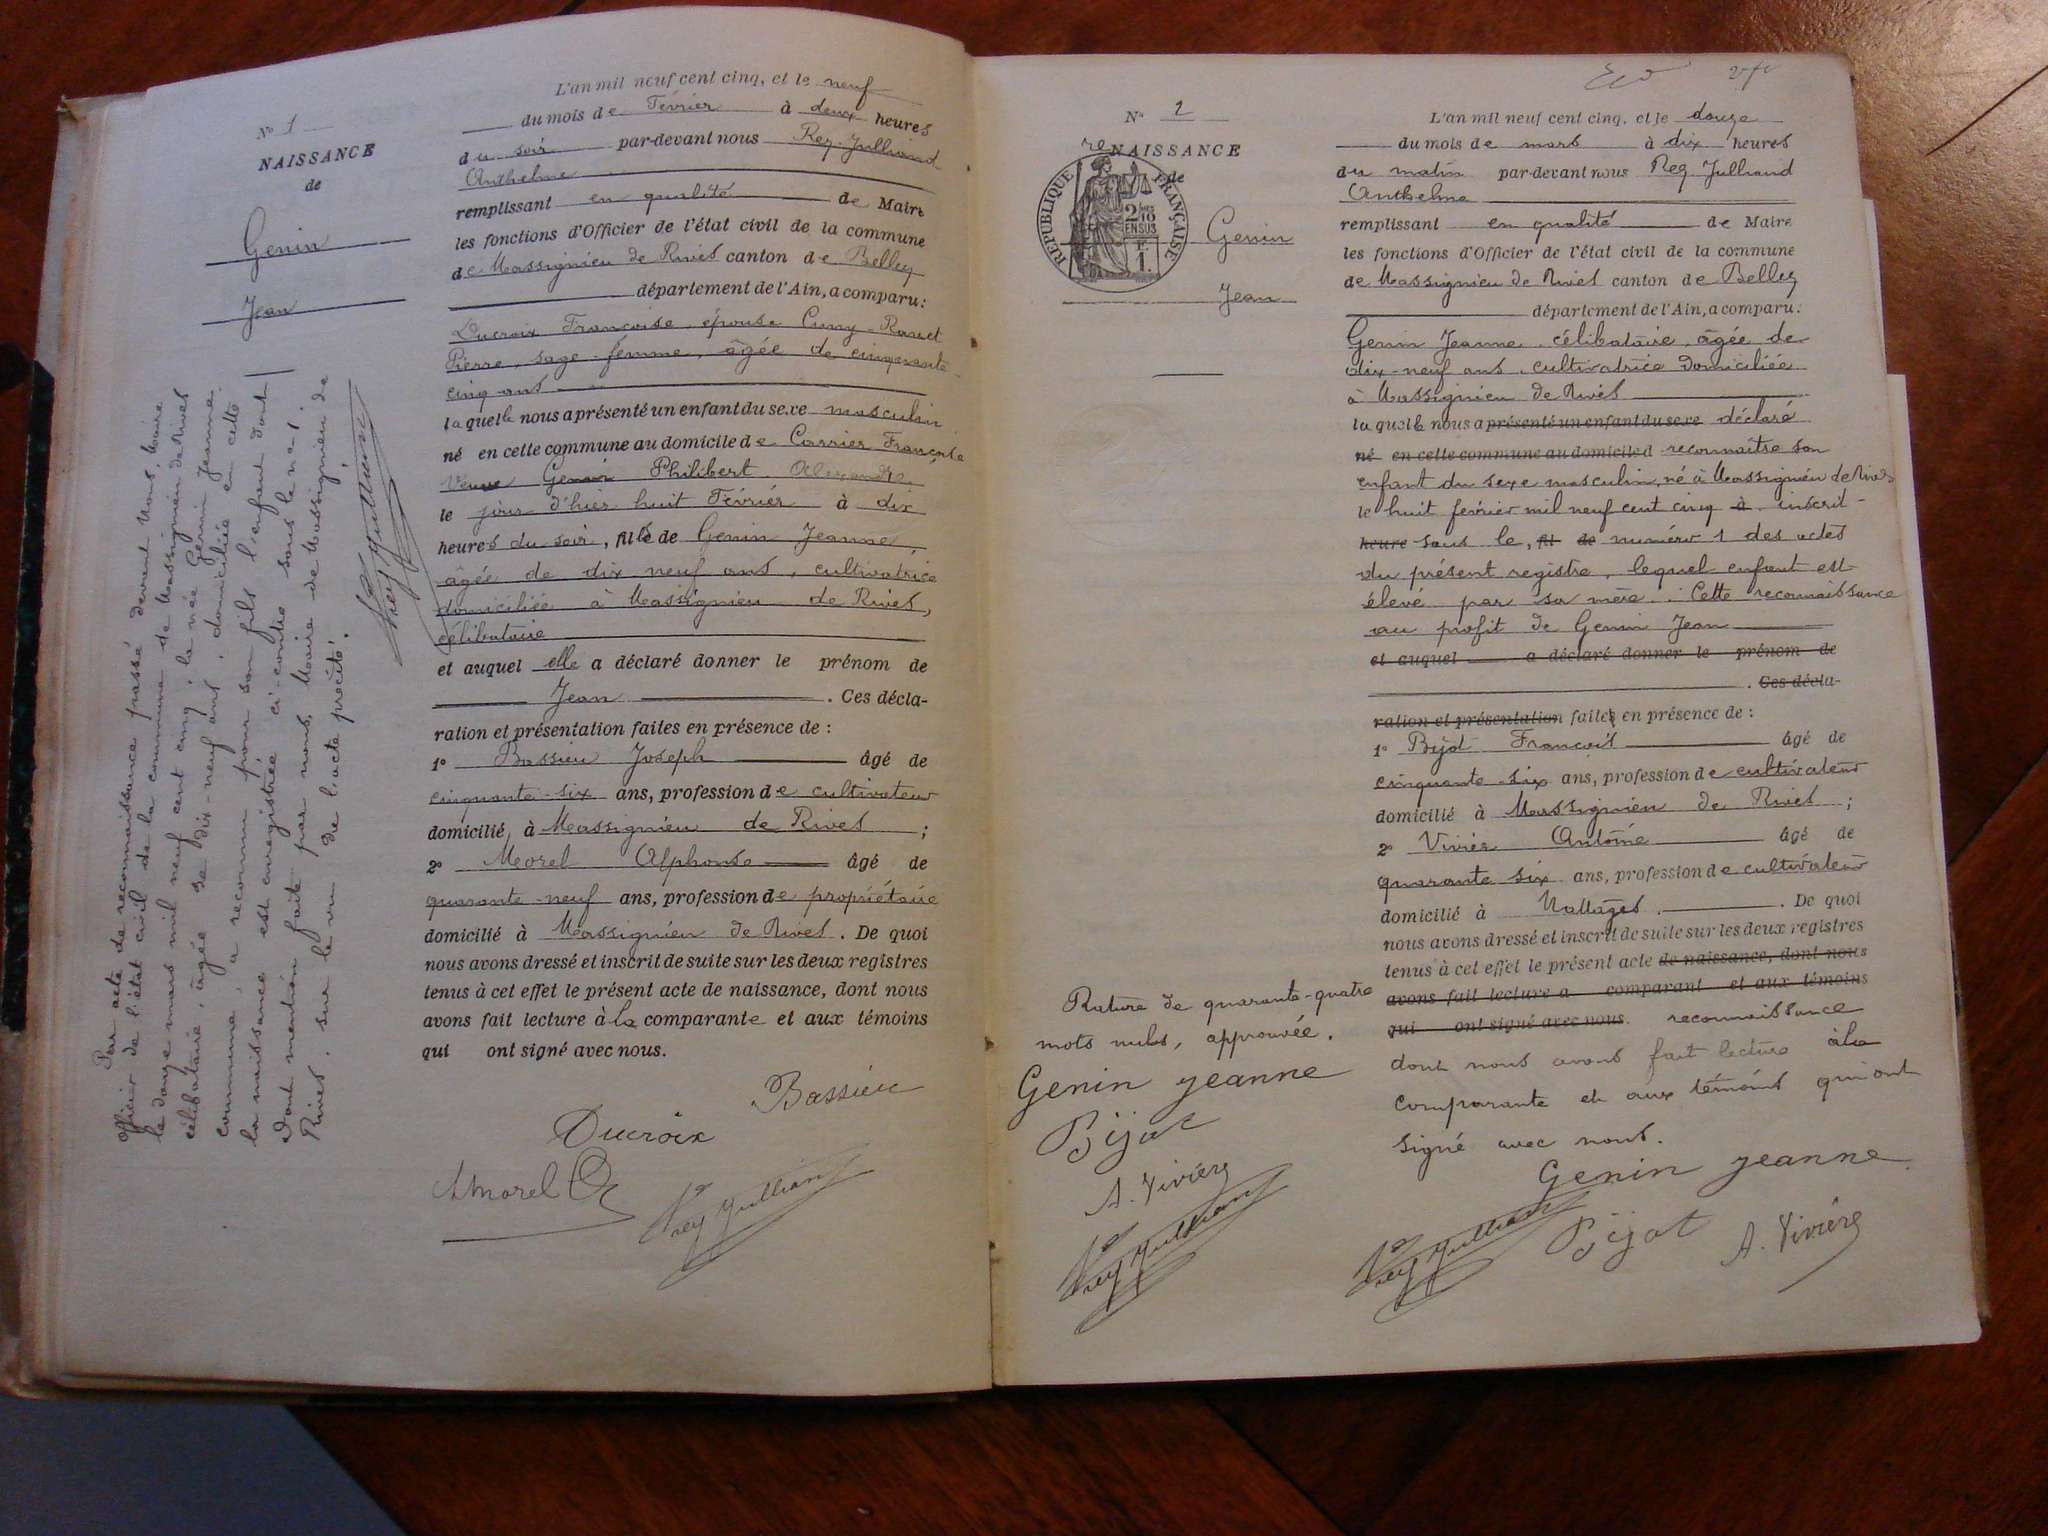 L'an mil neuf cent cinq, et le neuf
du mois de Février à deux heures
du soir par-devant nous Rey-Julliand
Anthelme
remplissant en qualité de Maire
les fonctions d'Officier de l'état civil de la commune
de Massignieu de Rives canton de Belley
département de l'Ain, a comparu:
Ducroix Françoise, épouse Cuny-Ravet
Pierre, sage-femme, âgée de cinquante-
cinq ans
laquelle nous a présenté un enfant du sexe masculin
né en cette commune au domicile de Carrier Françoise
Veuve Genin Philibert Alexandre
le jour d'hier huit Février à dix
heures du soir, fils de Genin Jeanne,
âgée de dix neuf ans, cultivatrice
domiciliée à Massignieu de Rives,
célibataire
et auquel elle a déclaré donner le prénom de
Jean. Ces décla-
ration et présentation faites en présence de :
1º Bassieu Joseph âgé de
cinquante-six ans, profession de cultivateur
domicilié à Massignieu de Rives ;
2º Morel Alphonse âgé de
quarante-neuf ans, profession de propriétaire
domicilié à Massignieu de Rives. De quoi
nous avons dressé et inscrit de suite sur les deux registres
tenus à cet effet le présent acte de naissance, dont nous
avons fait lecture à la comparante et aux témoins
qui ont signé avec nous.
Bassieu
Ducroix
A Morel
Rey Julliand
Nº 1
NAISSANCE
de
Genin
Jean
Par acte de reconnaissance passé devant Nous, Maire
officier de l'état civil de la commune de Massignieu de Rives
le douze mars mil neuf cent cinq, la née Genin Jeanne,
célibataire, âgée de dix-neuf ans, domiciliée en cette
commune, a reconnu pour son fils l'enfant dont
la naissance est enregistrée ci-contre sous le nº 1
Dont mention faite par nous, Maire de Massignieu de
Rives, sur le vu de l'acte précité.
Rey Julliand
Nº 2
reNAISSANCE
de
RÉPUBLIQUE FRANÇAISE
2/10
EN SUS
1F.
Genin
Jean
L'an mil neuf cent cinq, et le douze
du mois de mars à dix heures
du matin par-devant nous Rey Julliand
Anthelme
remplissant en qualité de Maire
les fonctions d'Officier de l'état civil de la commune
de Massignieu de Rives canton de Belley
département de l'Ain, a comparu:
Genin Jeanne célibataire, âgée de
dix-neuf ans, cultivatrice domiciliée
à Massignieu de Rives
laquelle nous a présenté un enfant du sexe déclaré
né en cette commune au domicile d reconnaître son
enfant du sexe masculin, né à Massignieu de Rives
le huit février mil neuf cent cinq à inscrit
heure sous le, fil de numéro 1 des actes
du présent registre, lequel enfant est
élevé par sa mère. Cette reconnaissance
au profit de Genin Jean
et auquel a déclaré donner le prénom de
. Ces décla-
ration et présentation faites en présence de :
1º Bijot François âgé de
cinquante-six ans, profession de cultivateur
domicilié à Massignieu de Rives ;
2º Vivier Antoine âgé de
quarante six ans, profession de cultivateur
domicilié à Nattages. De quoi
nous avons dressé et inscrit de suite sur les deux registres
tenus à cet effet le présent acte de naissance, dont nous
avons fait lecture a comparant et aux témoins
qui ont signé avec nous. reconnaissance
dont nous avons fait lecture à la
comparante et aux témoins qui ont
signé avec nous.
Genin Jeanne
Rey Julliand Bijot A. Vivier
Rature de quarante-quatre
mots nuls, approuvée.
Genin Jeanne
Bijot
A. Vivier
Rey Julliand